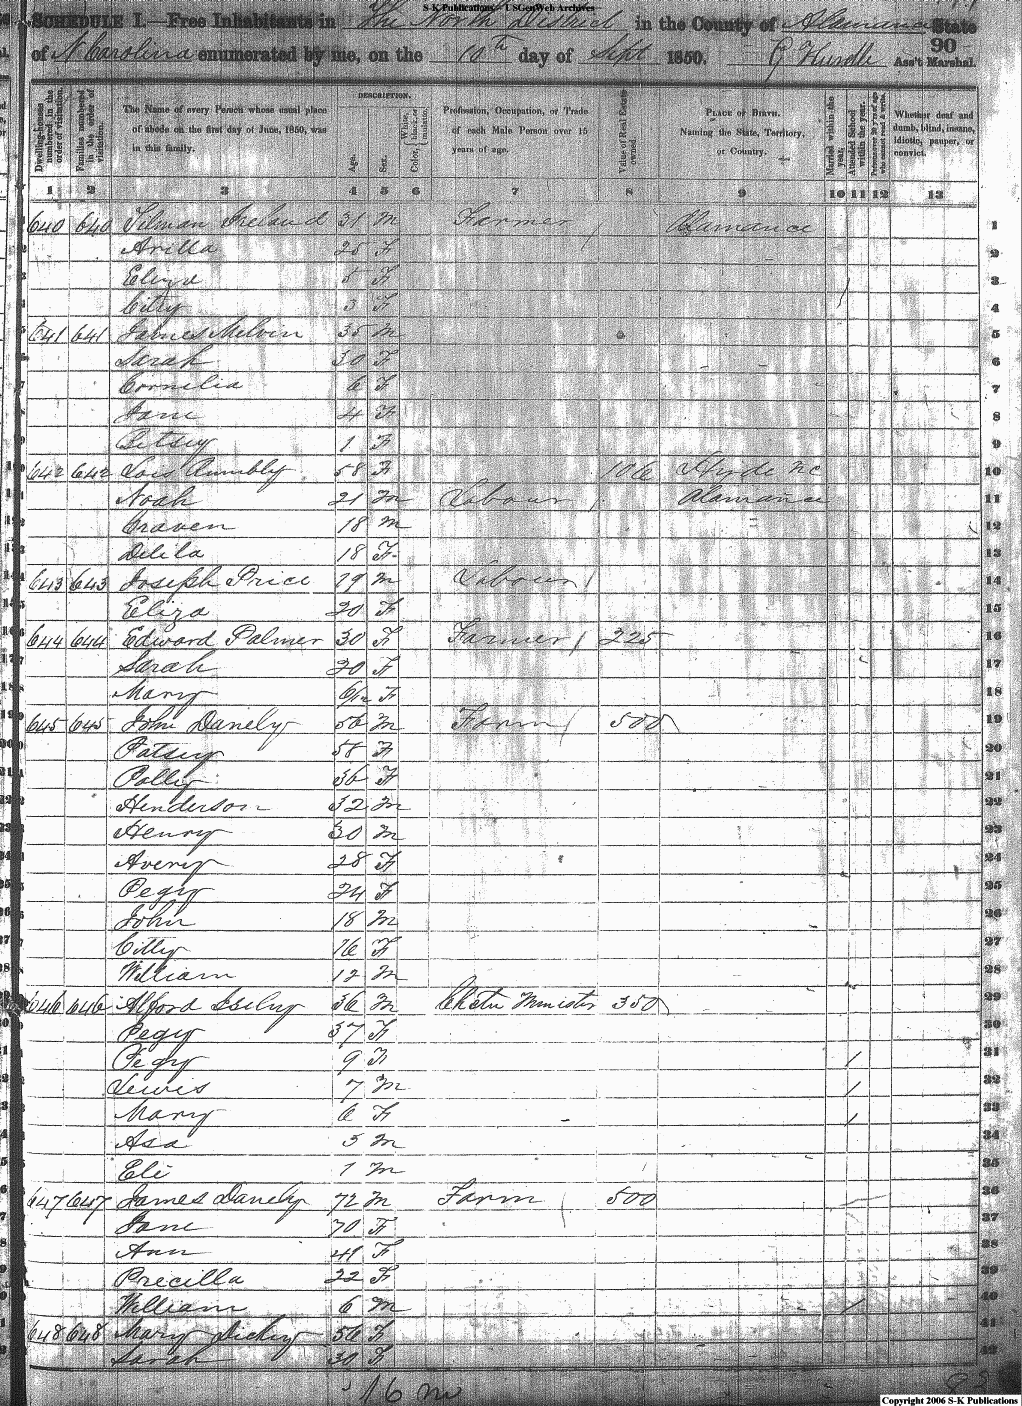 S-K Publications - USGenWeb Archives
SCHEDULE I.—Free Inhabitants in The North District in the County of Alamance State
of N Carolina enumerated by me, on the 10th day of Sept 1850. G Hurdle Ass't Marshal.
90
Dwelling-houses numbered in the order of visitation.
Families numbered in the order of visitation.
The Name of every Person whose usual place of abode on the first day of June, 1850, was in this family.
DESCRIPTION.
Age.
Sex.
Color, White, black, or mulatto.
Profession, Occupation, or Trade of each Male Person over 15 years of age.
Value of Real Estate owned.
PLACE OF BIRTH.
Naming the State, Territory, or Country.
Married within the year.
Attended School within the year.
Persons over 20 y'rs of age who cannot read & write.
Whether deaf and dumb, blind, insane, idiotic, pauper, or convict.
1 2 3 4 5 6 7 8 9 10 11 12 13
640 640 Tilman Ireland 31 M Farmer Alamance 1
Arilla 25 F 2
Eliza 5 F 3
Citry 3 F 4
641 641 James Melvin 35 M 5
Sarah 30 F 6
Cornelia 6 F 7
Jane 4 F 8
Betsey 1 F 9
642 642 Lois Rumbly 58 F 106 Hyde NC 10
Noah 21 M Labour Alamance 11
Craven 18 M 12
Delila 18 F 13
643 643 Joseph Price 29 M Labour 14
Eliza 20 F 15
644 644 Edward Palmer 30 F Farmer 225 16
Sarah 20 F 17
Mary 6/12 F 18
645 645 John Danely 56 M Farm 500 19
Patsey 58 F 20
Polly 36 F 21
Henderson 32 M 22
Henry 30 M 23
Avery 28 F 24
Pegy 24 F 25
John 18 M 26
Citty 16 F 27
William 12 M 28
646 646 Alford Iseley 36 M Chstn Minister 350 29
Pegy 37 F 30
Pegy 9 F / 31
Lewis 7 M / 32
Mary 6 F / 33
Asa 5 M 34
Eli 1 M 35
647 647 James Danely 72 M Farm 500 36
Jane 70 F 37
Ann 41 F 38
Precilla 22 F 39
William 6 M / 40
648 648 Mary Dickey 56 F 41
Sarah 30 F 42
16 m
Copyright 2006 S-K Publications